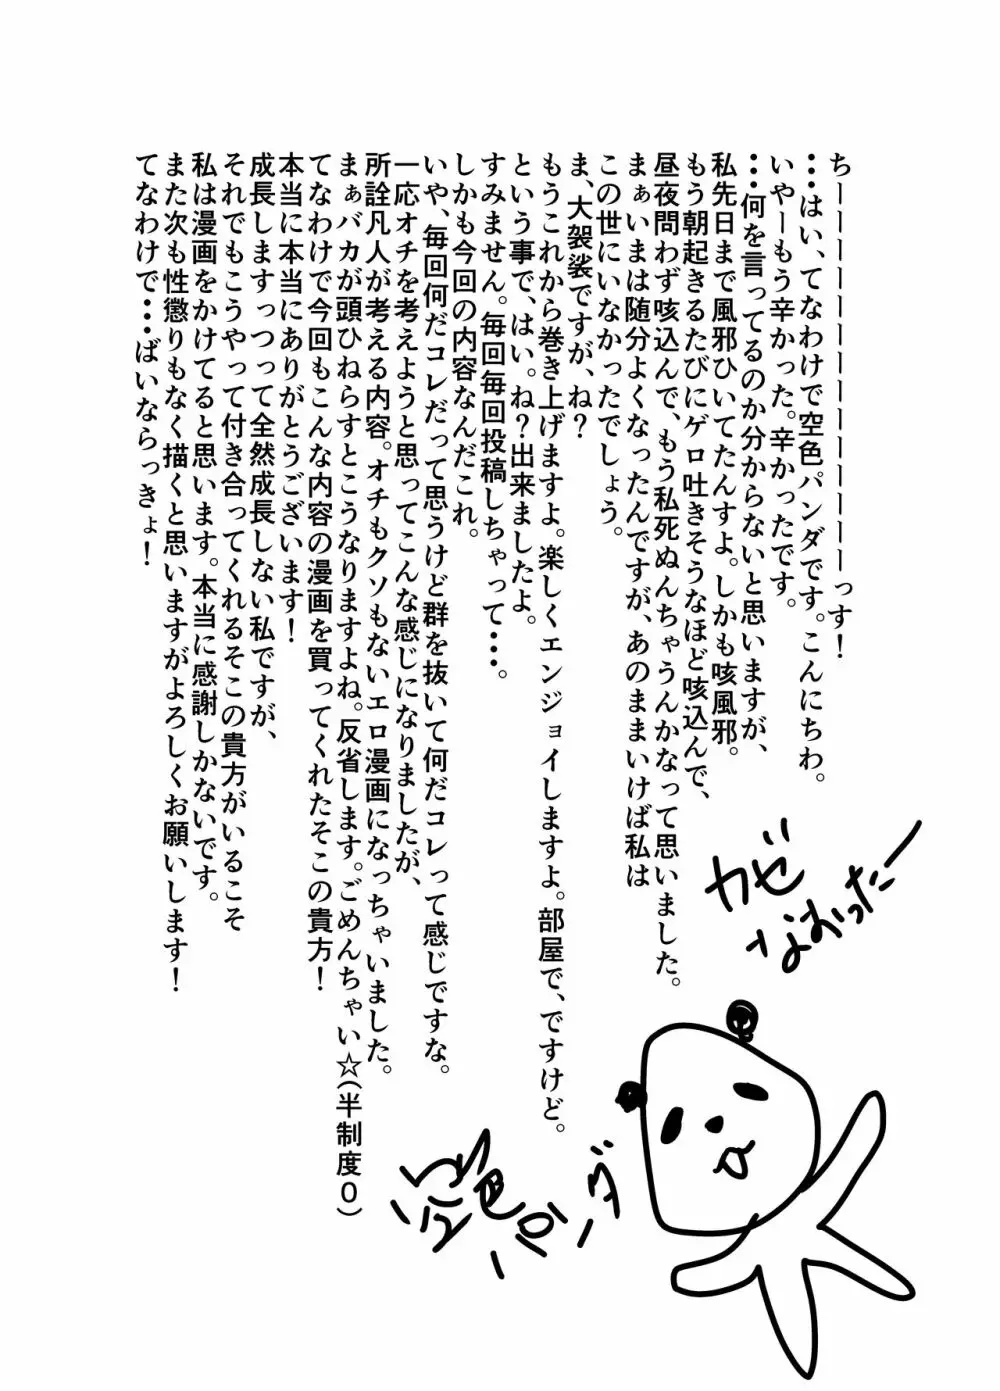 ちーーーーーーーーーーーーーっす！
・・・はい、てなわけで空色パンダです。こんにちわ。
いやーもう辛かった。辛かったです。
・・・何を言ってるのか分からないと思いますが、
私先日まで風邪ひいてたんすよ。しかも咳風邪。
もう朝起きるたびにゲロ吐きそうなほど咳込んで、
昼夜問わず咳込んで、もう私死ぬんちゃうんかなって思いました。
まぁいまは随分よくなったんですが、あのままいけば私は
この世にいなかったでしょう。
ま、大袈裟ですが、ね？
もうこれから巻き上げますよ。楽しくエンジョイしますよ。部屋で、ですけど。
という事で、はい。ね？出来ましたよ。
すみません。毎回毎回投稿しちゃって・・・。
しかも今回の内容なんだこれ。
いや、毎回何だコレだって思うけど群を抜いて何だコレって感じですな。
一応オチを考えようと思ってこんな感じになりましたが、
所詮凡人が考える内容。オチもクソもないエロ漫画になっちゃいました。
まぁバカが頭ひねらすとこうなりますよね。反省します。ごめんちゃい☆(半制度０)
てなわけで今回もこんな内容の漫画を買ってくれたそこの貴方！
本当に本当にありがとうございます！
成長しますっつって全然成長しない私ですが、
それでもこうやって付き合ってくれるそこの貴方がいるこそ
私は漫画をかけてると思います。本当に感謝しかないです。
また次も性懲りもなく描くと思いますがよろしくお願いします！
てなわけで・・・ばいならっきょ！
カゼ
なおったー
空色
パンダ